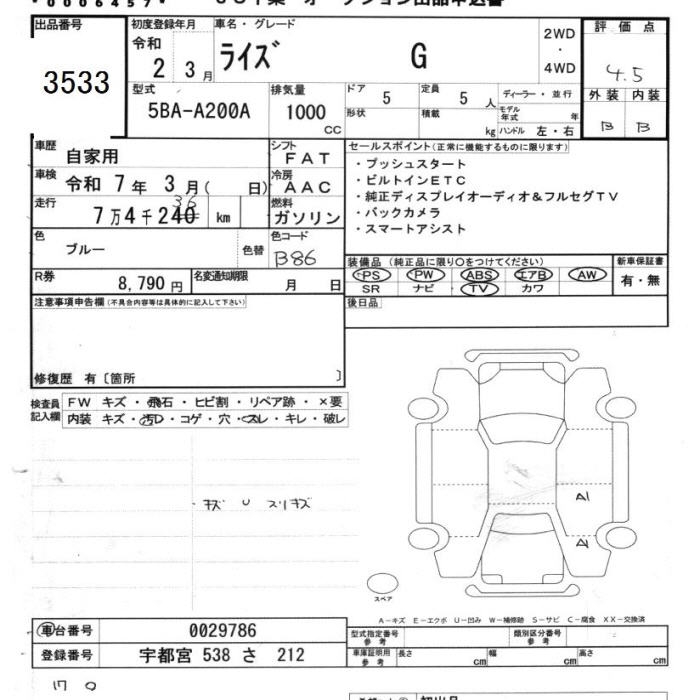 * 0006457 *
オークション出品申込書
出品番号
3533
初度登録年月
令和
2 3月
車名・グレード
ライズ G
2WD
・
4WD
評価点
4.5
外装 内装
B B
型式
5BA-A200A
排気量
1000
CC
ドア
5
形状
定員
5 人
積載
kg
ディーラー・並行
モデル年式 年
ハンドル 左・右
車歴
自家用
シフト
FAT
車検
令和 7年 3月( 日)
冷房
AAC
走行
7万4千240 km
36
燃料
ガソリン
色
ブルー
色替
色コード
B86
R券
8,790円
名変通知期限
月 日
セールスポイント(正常に機能するものに限ります)
・プッシュスタート
・ビルトインETC
・純正ディスプレイオーディオ&フルセグTV
・バックカメラ
・スマートアシスト
装備品(純正品に限り○をつけてください)
PS PW ABS エアB AW
SR ナビ TV カワ
新車保証書
有・無
後日品
注意事項申告欄(不具合内容等は具体的に記入して下さい)
修復歴 有〔箇所 〕
検査員
記入欄
FW キズ・飛石・ヒビ割・リペア跡・×要
内装 キズ・汚レ・コゲ・穴・スレ・キレ・破レ
・キズ U スリキズ
A1
A1
スペア
A-キズ E-エクボ U-凹み W-補修跡 S-サビ C-腐食 XX-交換済
車台番号
0029786
登録番号
宇都宮 538 さ 212
型式指定番号
参考
類別区分番号
参考
車庫証明用
参考
長さ cm
幅 cm
高さ cm